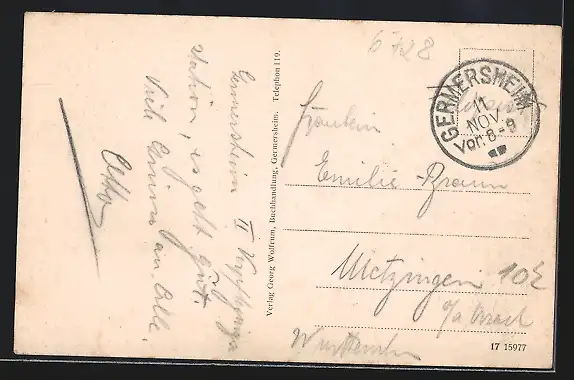 6728
GERMERSHEIM
11
NOV
Vor. 8-9
Fräulein
Emilie Braun
Metzingen
Württemb
Germersheim II Verpflegungs
station, es geht gut.
Viele Grüsse an Alle.
Otto
Verlag Georg Wolfrum, Buchhandlung, Germersheim. Telephon 119.
17 15977